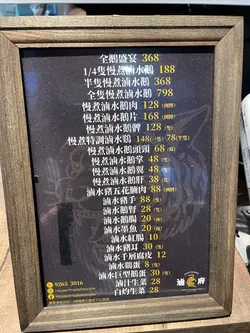 全鵝盛宴 368
1/4隻慢煮滷水鵝 188
半隻慢煮滷水鵝 368
全隻慢煮滷水鵝 798
慢煮滷水鵝肉 128
慢煮滷水鵝片 168
慢煮滷水鵝髀 128 (隻)
慢煮特調滷水鷄 148(一隻) 78(半隻)
慢煮滷水鵝頭頸 68
慢煮滷水鵝掌 48 (隻)
慢煮滷水鵝翼 48 (隻)
慢煮滷水鵝肝 38
滷水豬五花腩肉 88
滷水豬手 88 (隻)
滷水鵝腎 28 (隻)
滷水鵝腸 20
滷水墨魚 20
滷水紅腸 10
滷水豬耳 30 (隻)
滷水千層腐皮 12
滷水鵝蛋 8 (隻)
滷水巨型鵝蛋 30 (隻)
滷汁生菜 28
白灼生菜 28
9265 3016
滷府